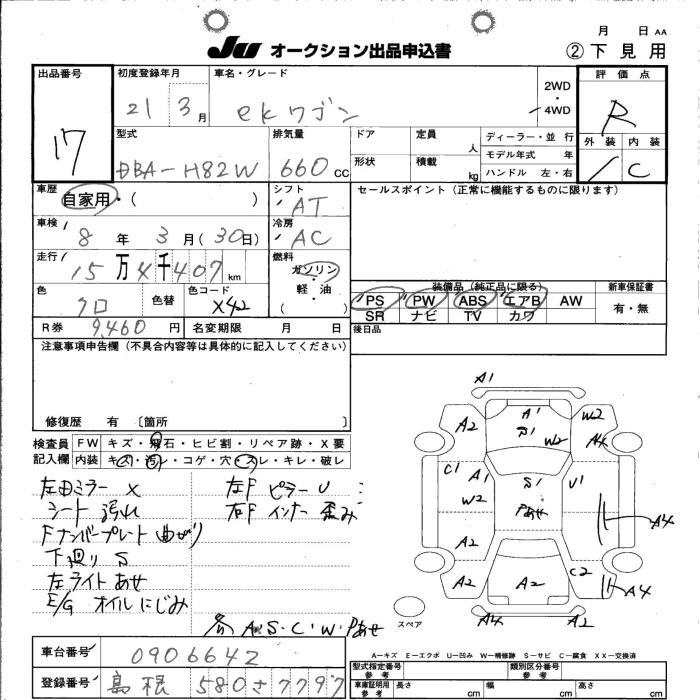 月 日 AA
JU オークション出品申込書 ② 下見用
出品番号 初度登録年月 車名・グレード 評価点
17 21 3月 ekワゴン 2WD 4WD R
型式 排気量 ドア 定員 人 ディーラー・並行 外装 内装
DBA-H82W 660cc 形状 積載 kg モデル年式 年 C
ハンドル 左・右
車歴 自家用・( ) シフト AT セールスポイント(正常に機能するものに限ります)
車検 8年 3月(30日) 冷房 AC
走行 15万4千407km 燃料 ガソリン・軽油 ( )
色 クロ 色替 色コード X42
装備品(純正品に限る) 新車保証書
PS PW ABS エアB AW 有・無
SR ナビ TV カワ
R券 9,460円 名変期限 月 日 後日品
注意事項申告欄(不具合内容等は具体的に記入してください)
修復歴 有〔箇所 〕
検査員 FW キズ・飛石・ヒビ割・リペア跡・X要
記入欄 内装 キズ・汚れ・コゲ・穴・スレ・キレ・破レ
左ドミラー X 左F ピラー U
シート 汚れ 右F インナー 歪み
Fナンバープレート 曲がり
下廻り S
左ライト あせ
E/G オイルにじみ
A・S・C・W・Pあせ
A1
A2 A1 S1 W2 W2 A4
C1 A1 S1 U1
W2 Pあせ A4
A2 C2
A2 A2 A4
スペア A4 A2
A-キズ E-エクボ U-凹み W-補修跡 S-サビ C-腐食 XX-交換済
車台番号 0906642 型式指定番号 参考 類別区分番号 参考
登録番号 島根 580 さ 7797 車庫証明用 参考 長さ cm 幅 cm 高さ cm